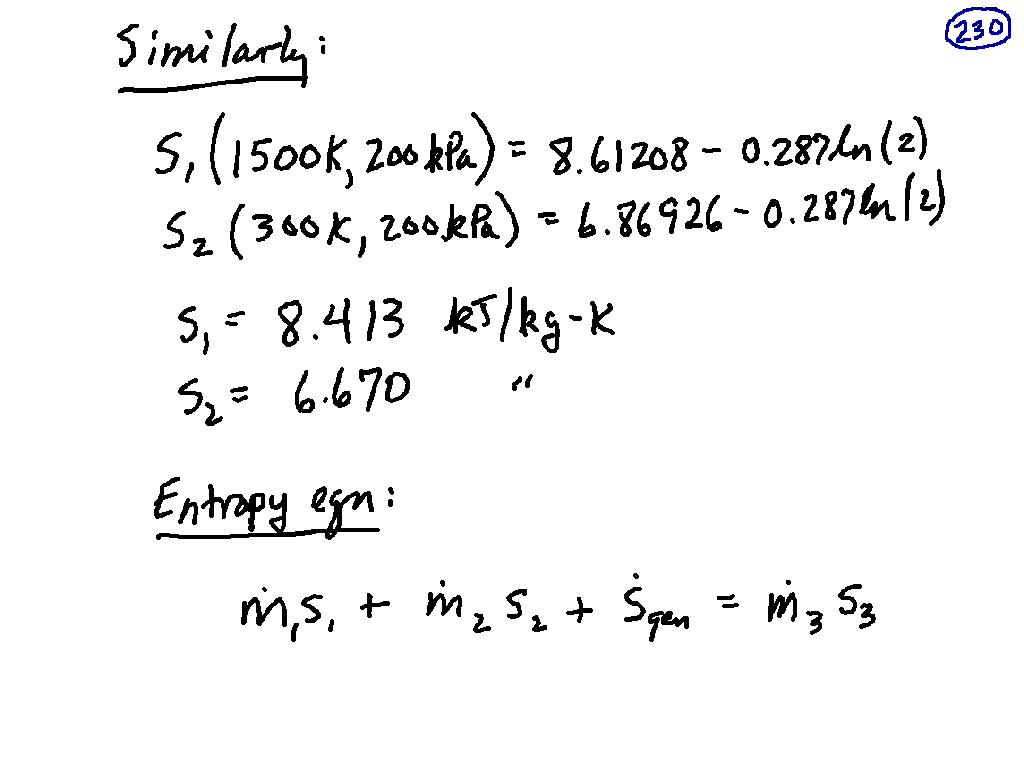 230
Similarly:
S₁(1500K, 200kPa) = 8.61208 - 0.287ln(2)
S₂(300K, 200kPa) = 6.86926 - 0.287ln(2)
S₁ = 8.413 kJ/kg-K
S₂ = 6.670 "
Entropy eqn:
ṁ₁s₁ + ṁ₂s₂ + Ṡgen = ṁ₃s₃